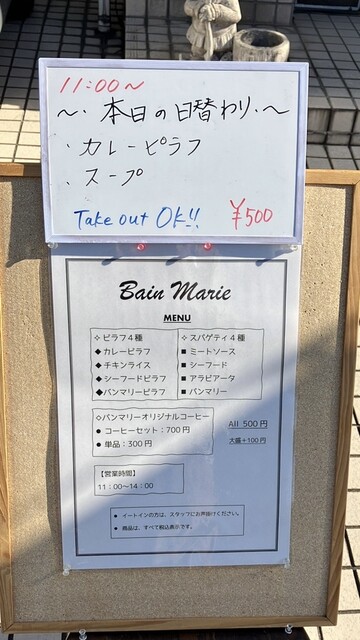 11:00〜
〜・本日の日替わり・〜
・カレーピラフ
・スープ
Take out OK!! ¥500
Bain Marie
MENU
✧ピラフ4種
◆カレーピラフ
◆チキンライス
◆シーフードピラフ
◆バンマリーピラフ
✧スパゲティ4種
■ ミートソース
■ シーフード
■ アラビアータ
■ バンマリー
◇バンマリーオリジナルコーヒー
● コーヒーセット：700円
● 単品：300円
All 500円
大盛+100円
【営業時間】
11：00〜14：00
● イートインの方は、スタッフにお声掛けください。
● 商品は、すべて税込表示です。